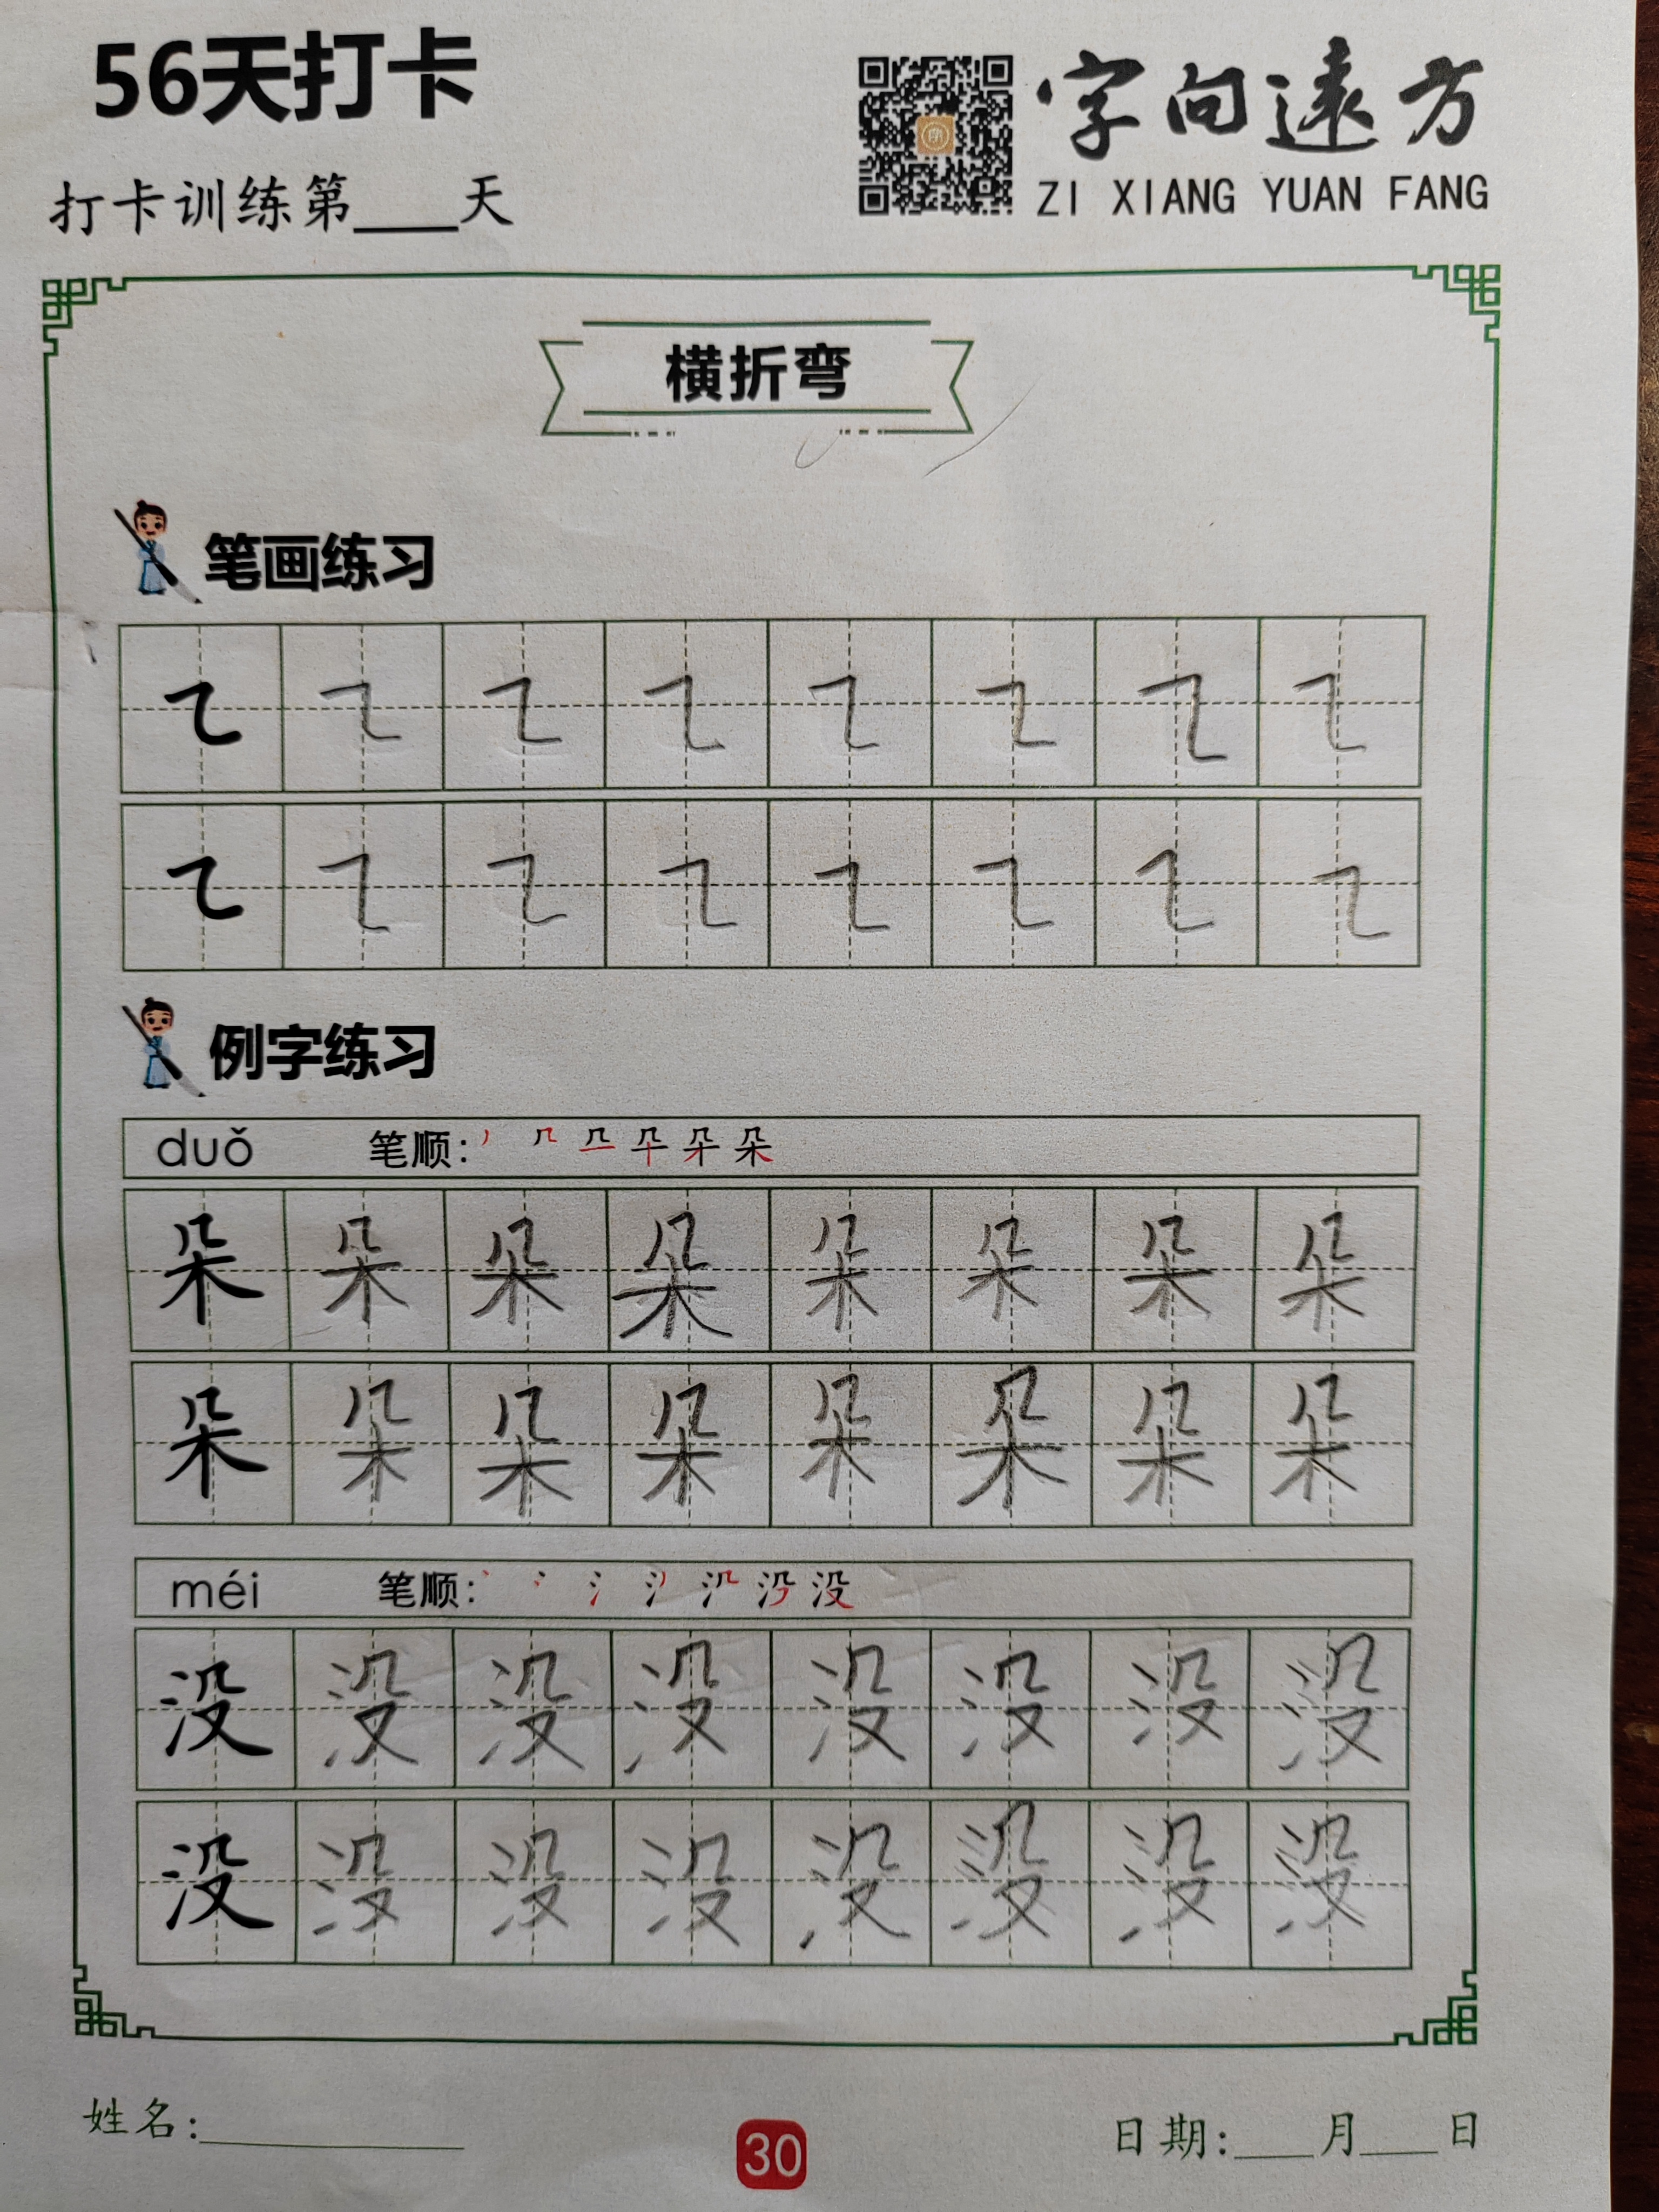 56天打卡
字向遠方
ZI XIANG YUAN FANG
打卡训练第____天
横折弯
笔画练习
例字练习
duǒ 笔顺：
朵 朵 朵 朵 朵 朵 朵 朵
朵 朵 朵 朵 朵 朵 朵 朵
méi 笔顺： 没
没 没 没 没 没 没 没 没
没 没 没 没 没 没 没 没
姓名：________ 日期：___月___日
30